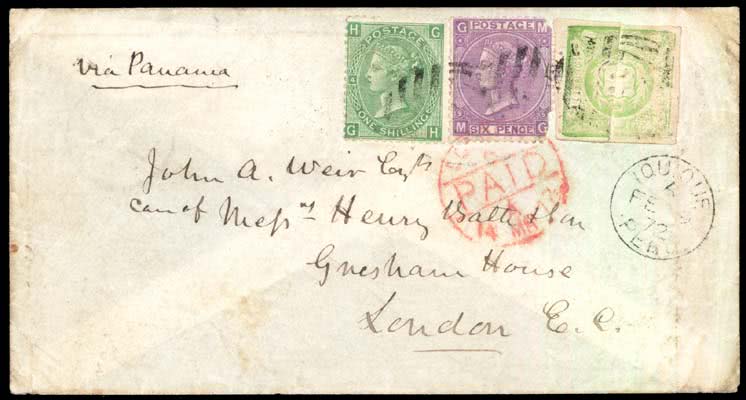 via Panama
H G
POSTAGE
4
ONE SHILLING
G H
G M
POSTAGE
SIX PENCE
M G
PAID
14 MR
IQUIQUE
72
PERU
John A. Weir Esqre
care of Messrs Henry & Son
Gresham House
London E.C.